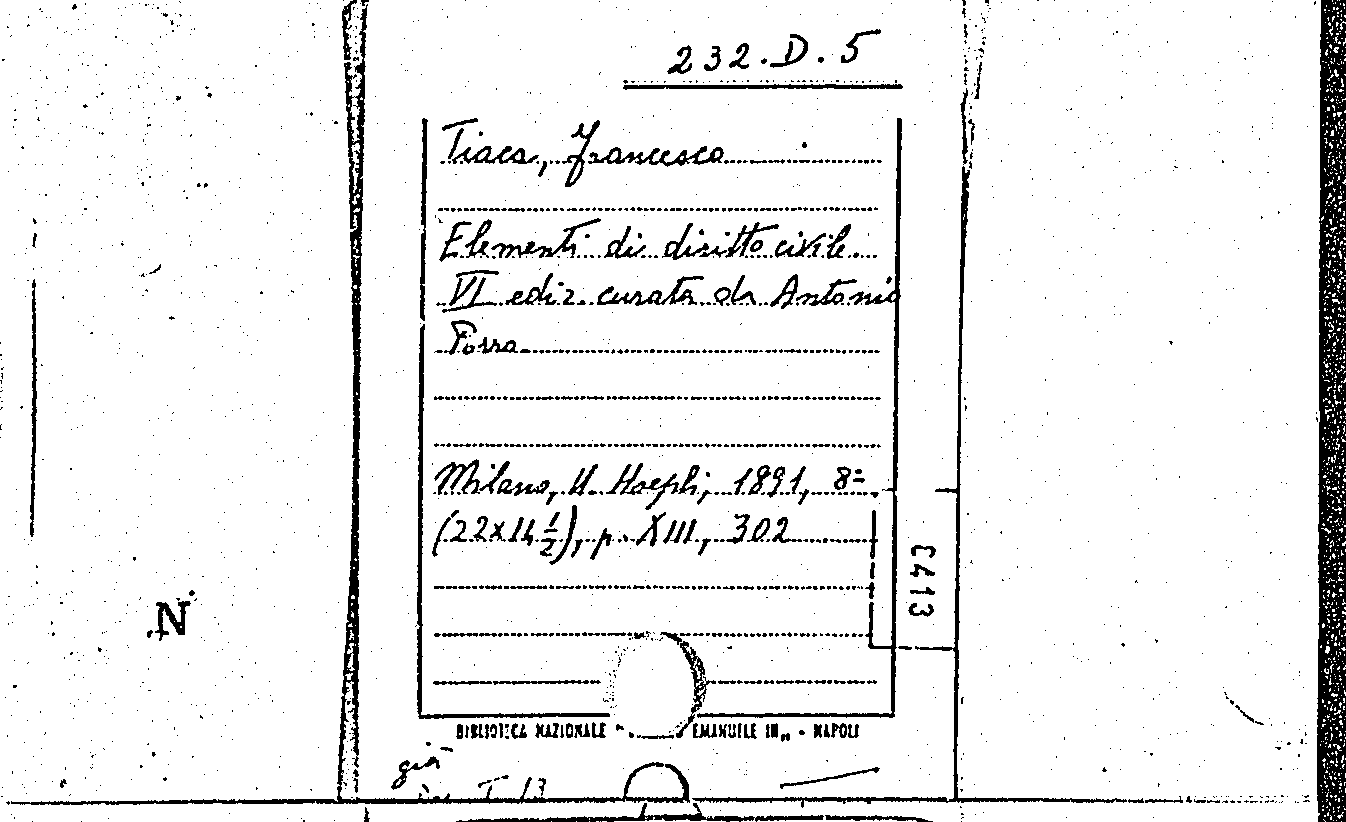 232.D.5
Tiaca, Francesco
Elementi di diritto civile.
VI ediz. curata da Antonio
Porro
Milano, U. Hoepli, 1891, 8º
(22x14 ½), p. XIII, 302
N
BIBLIOTECA NAZIONALE " EMANUELE III„ - NAPOLI
già